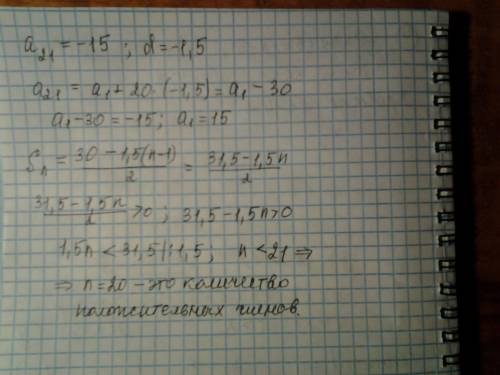 a₂₁ = -15 ; d = -1,5
a₂₁ = a₁ + 20·(-1,5) = a₁ - 30
a₁ - 30 = -15; a₁ = 15
Sₙ = (30 - 1,5(n-1))/2 = (31,5 - 1,5n)/2
(31,5 - 1,5n)/2 > 0 ; 31,5 - 1,5n > 0
1,5n < 31,5 |:1,5 ; n < 21 ⇒
⇒ n = 20 - это количество
положительных членов.